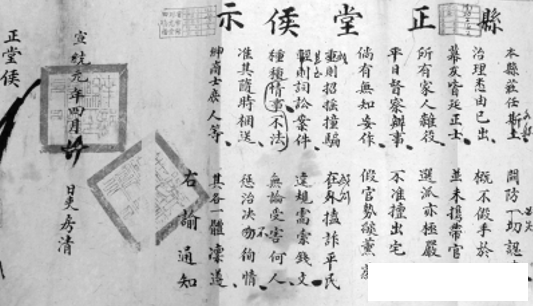 縣正堂侯示
本縣蒞任斯土 關防一切認
治理悉由己出 概不假手於
幕友皆延正士 並未攜帶官
所有家人雜役 選派亦極嚴
平日督察辦事 不准擅出宅
倘有無知妄作 假官勢燄薰
重則招搖撞騙 在外搕詐平民
輕則詞訟案件 違規需索錢文
種種情事不法 無論受害何人
准其隨時稟送 懲治決不徇情
紳商士庶人等 其各一體凜遵
右諭通知
宣統元年四月 日吏房清
正堂侯